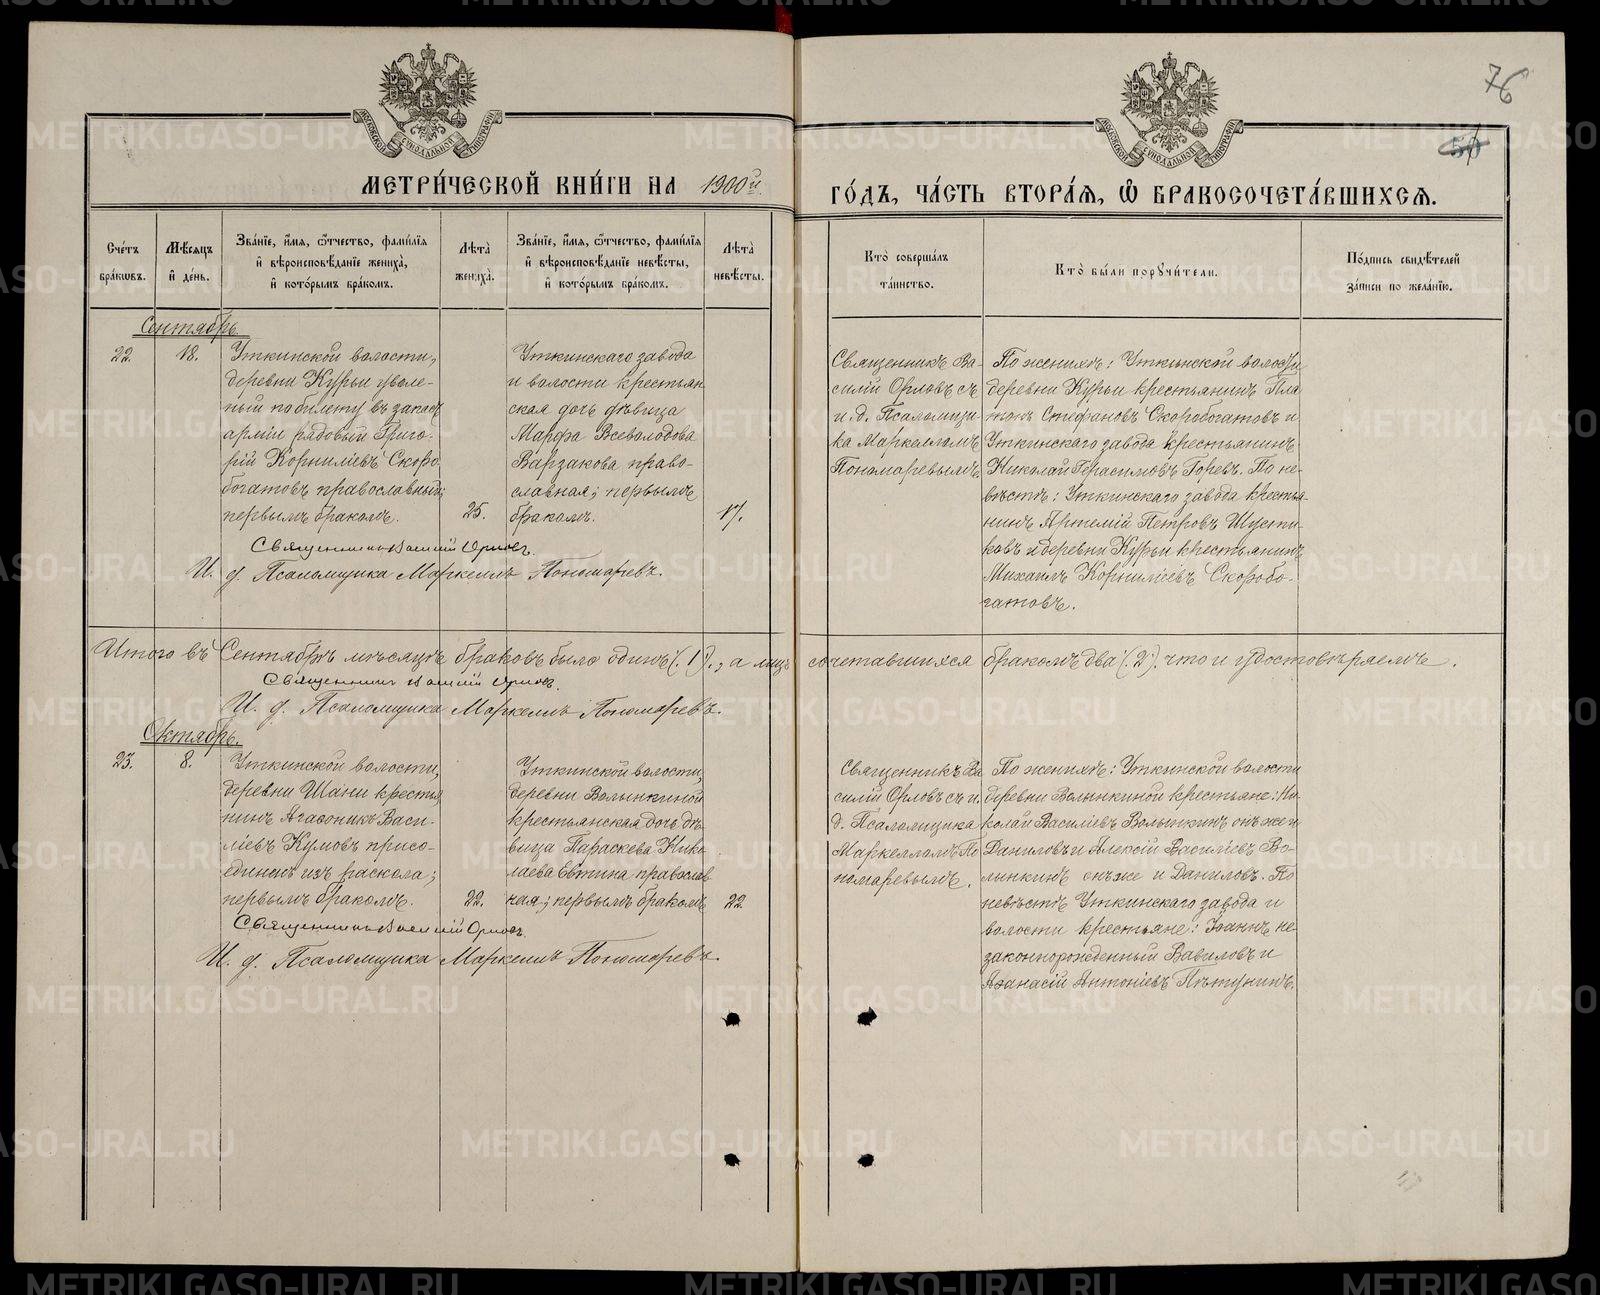 76
50
МОСКОВСКОЙ СѴНОДАЛЬНОЙ ТИПОГРАФІИ
МОСКОВСКОЙ СѴНОДАЛЬНОЙ ТИПОГРАФІИ
МЕТРИ́ЧЕСКОЙ КНИ́ГИ НА 1900й.
ГО́ДЪ, ЧА́СТЬ ВТОРА́Я, Ѡ БРАКОСОЧЕТА́ВШИХСЯ.
Сче́тъ бра́кѡвъ.
Мѣ́сяцъ и҆ де́нь.
Зва́нїе, и҆́мя, ѻ҆́тчество, фами́лїя и҆ вѣроисповѣ́данїе жениха̀, и҆ кото́рымъ бра́комъ.
Лѣта̀ жениха̀.
Зва́нїе, и҆́мя, ѻ҆́тчество, фами́лїя и҆ вѣроисповѣ́данїе невѣ́сты, и҆ кото́рымъ бра́комъ.
Лѣта̀ невѣ́сты.
Кто̀ соверша́лъ та́инство.
Кто̀ бы́ли порꙋчи́тели.
По́дпись свидѣ́телей за́писи по жела́нїю.
Сентябрь.
22.
18.
Уткинской волости,
деревни Курьи уволе-
ный по билету въ запасъ
арміи рядовый Григо-
рій Корниліевъ Скоро
богатовъ православный;
первымъ бракомъ.
25.
Уткинскаго завода
и волости крестьян
ская дочь дѣвица
Марфа Всеволодова
Варзакова право-
славная; первымъ
бракомъ.
17.
Священникъ Ва-
силій Орловъ съ
и. д. Псаломщи
ка Маркелломъ
Пономаревымъ.
По женихѣ: Уткинской волости
деревни Курьи крестьянинъ Пла
тонъ Стефановъ Скоробогатовъ и
Уткинскаго завода крестьянинъ
Николай Герасимовъ Горевъ. По не-
вѣстѣ: Уткинскаго завода крестья-
нинъ Артемій Петровъ Шусти-
ковъ и деревни Курьи крестьянинъ
Михаилъ Корниліевъ Скоробо-
гатовъ.
Священникъ Василій Орловъ.
И. д. Псаломщика Маркеллъ Пономаревъ.
Итого въ Сентябрѣ мѣсяцѣ браковъ было одинъ (1)., а лицъ сочетавшихся бракомъ два (2). что и удостовѣряемъ.
Священникъ Василій Орловъ.
И. д. Псаломщика Маркеллъ Пономаревъ.
Октябрь.
23.
8.
Уткинской волости,
деревни Шани крестья
нинъ Агафоникъ Васи-
ліевъ Кумовъ присо-
единенъ изъ раскола;
первымъ бракомъ.
22.
Уткинской волости,
деревни Волынкиной
крестьянская дочь дѣ-
вица Параскева Нико
лаева Евтина православ
ная; первымъ бракомъ
22.
Священникъ Ва
силій Орловъ съ и.
д. Псаломщика
Маркелломъ По
номаревымъ.
По женихѣ: Уткинской волости
деревни Волынкиной крестьяне: Ни-
колай Василіевъ Волынкинъ онъ же и
Даниловъ и Алексій Василіевъ Во-
лынкинъ онъ же и Даниловъ. По
невѣстѣ Уткинскаго завода и
волости крестьяне: Іоаннъ не-
законнорожденный Вавиловъ и
Аѳанасій Антоніевъ Пѣтунинъ.
Священникъ Василій Орловъ.
И. д. Псаломщика Маркеллъ Пономаревъ.
METRIKI.GASO-URAL.RU